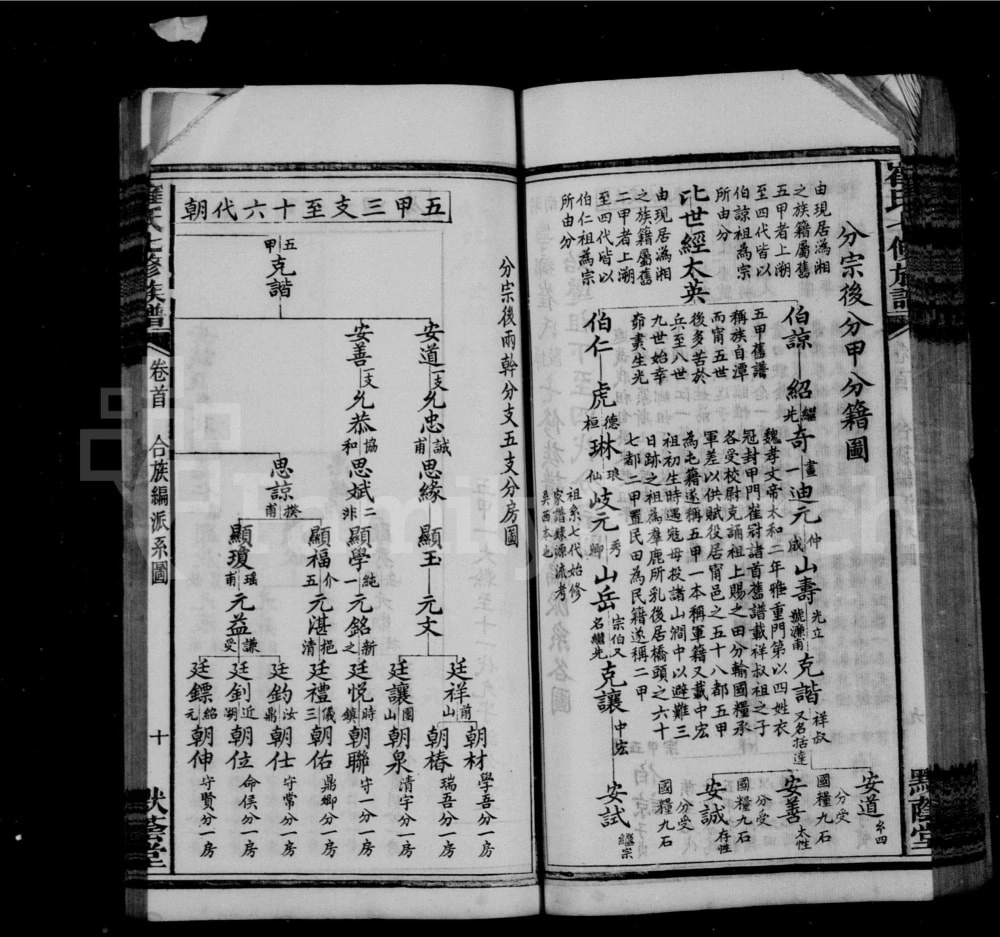 崔氏七修族譜
默蔭堂
分宗後分甲分籍圖
由現居潙湘
之族籍屬舊
五甲者上溯
至四代皆以
伯諒祖為宗
所由分
比世經太英
由現居潙湘
之族籍屬舊
二甲者上溯
至四代皆以
伯仁祖為宗
所由分
伯諒 紹 繼光 奇 畫一 迪元 仲咸 山壽 光立 號濂甫 克諧 祥叔 又名括達
安道 糸四 分受 國糧九石
安善 太性 分受 國糧九石
安誠 存性 分受 國糧九石
五甲舊譜
稱族自潭
而甯五世
後多苦於
兵至八世
九世始幸
茆畫生光
魏孝文帝太和二年雅重門第以四姓衣
冠封甲門崔冠諸首舊譜載祥叔祖之子
各受校尉克誦祖上賜之田分輸國糧承
軍差以供賦役居甯邑之五十八都五甲
為屯籍遂稱五甲一本稱軍籍又載中宏
祖初生時遇寇毋投諸山澗中以避難三
日跡之祖為羣鹿所乳後居橋頭之六十
七都二甲置民田為民籍遂稱二甲
伯仁 虎 德桓 琳 琅仙 岐元 秀卿 山岳 宗伯又名繼光 克讓 中宏 安試 繼宗
祖糸七代始修
家譜嫌源流考
分宗後兩幹分支五支分房圖
五甲三支至十六代朝
五甲 克諧
安道 一支 允忠 誠甫 思緣 顯玉 元文
廷祥 前山 朝材 學吾分一房
朝椿 瑞吾分一房
廷讓 國山 朝泉 清宇分一房
安善 二支 允恭 協和 思斌 二非 顯學 純一 元銘 新之 廷悅 時鎮 朝聯 守一分一房
思諒 揆甫
顯福 介五 元湛 挹清 廷禮 儀三 朝佑 鼎鄉分一房
顯瓊 瑶甫 元益 謙受
廷鈞 汝鼎 朝仕 守常分一房
廷釗 近朔 朝位 命侯分一房
廷鏢 紹元 朝伸 守賢分一房
崔氏七修族譜
卷首 合族編派系圖
十